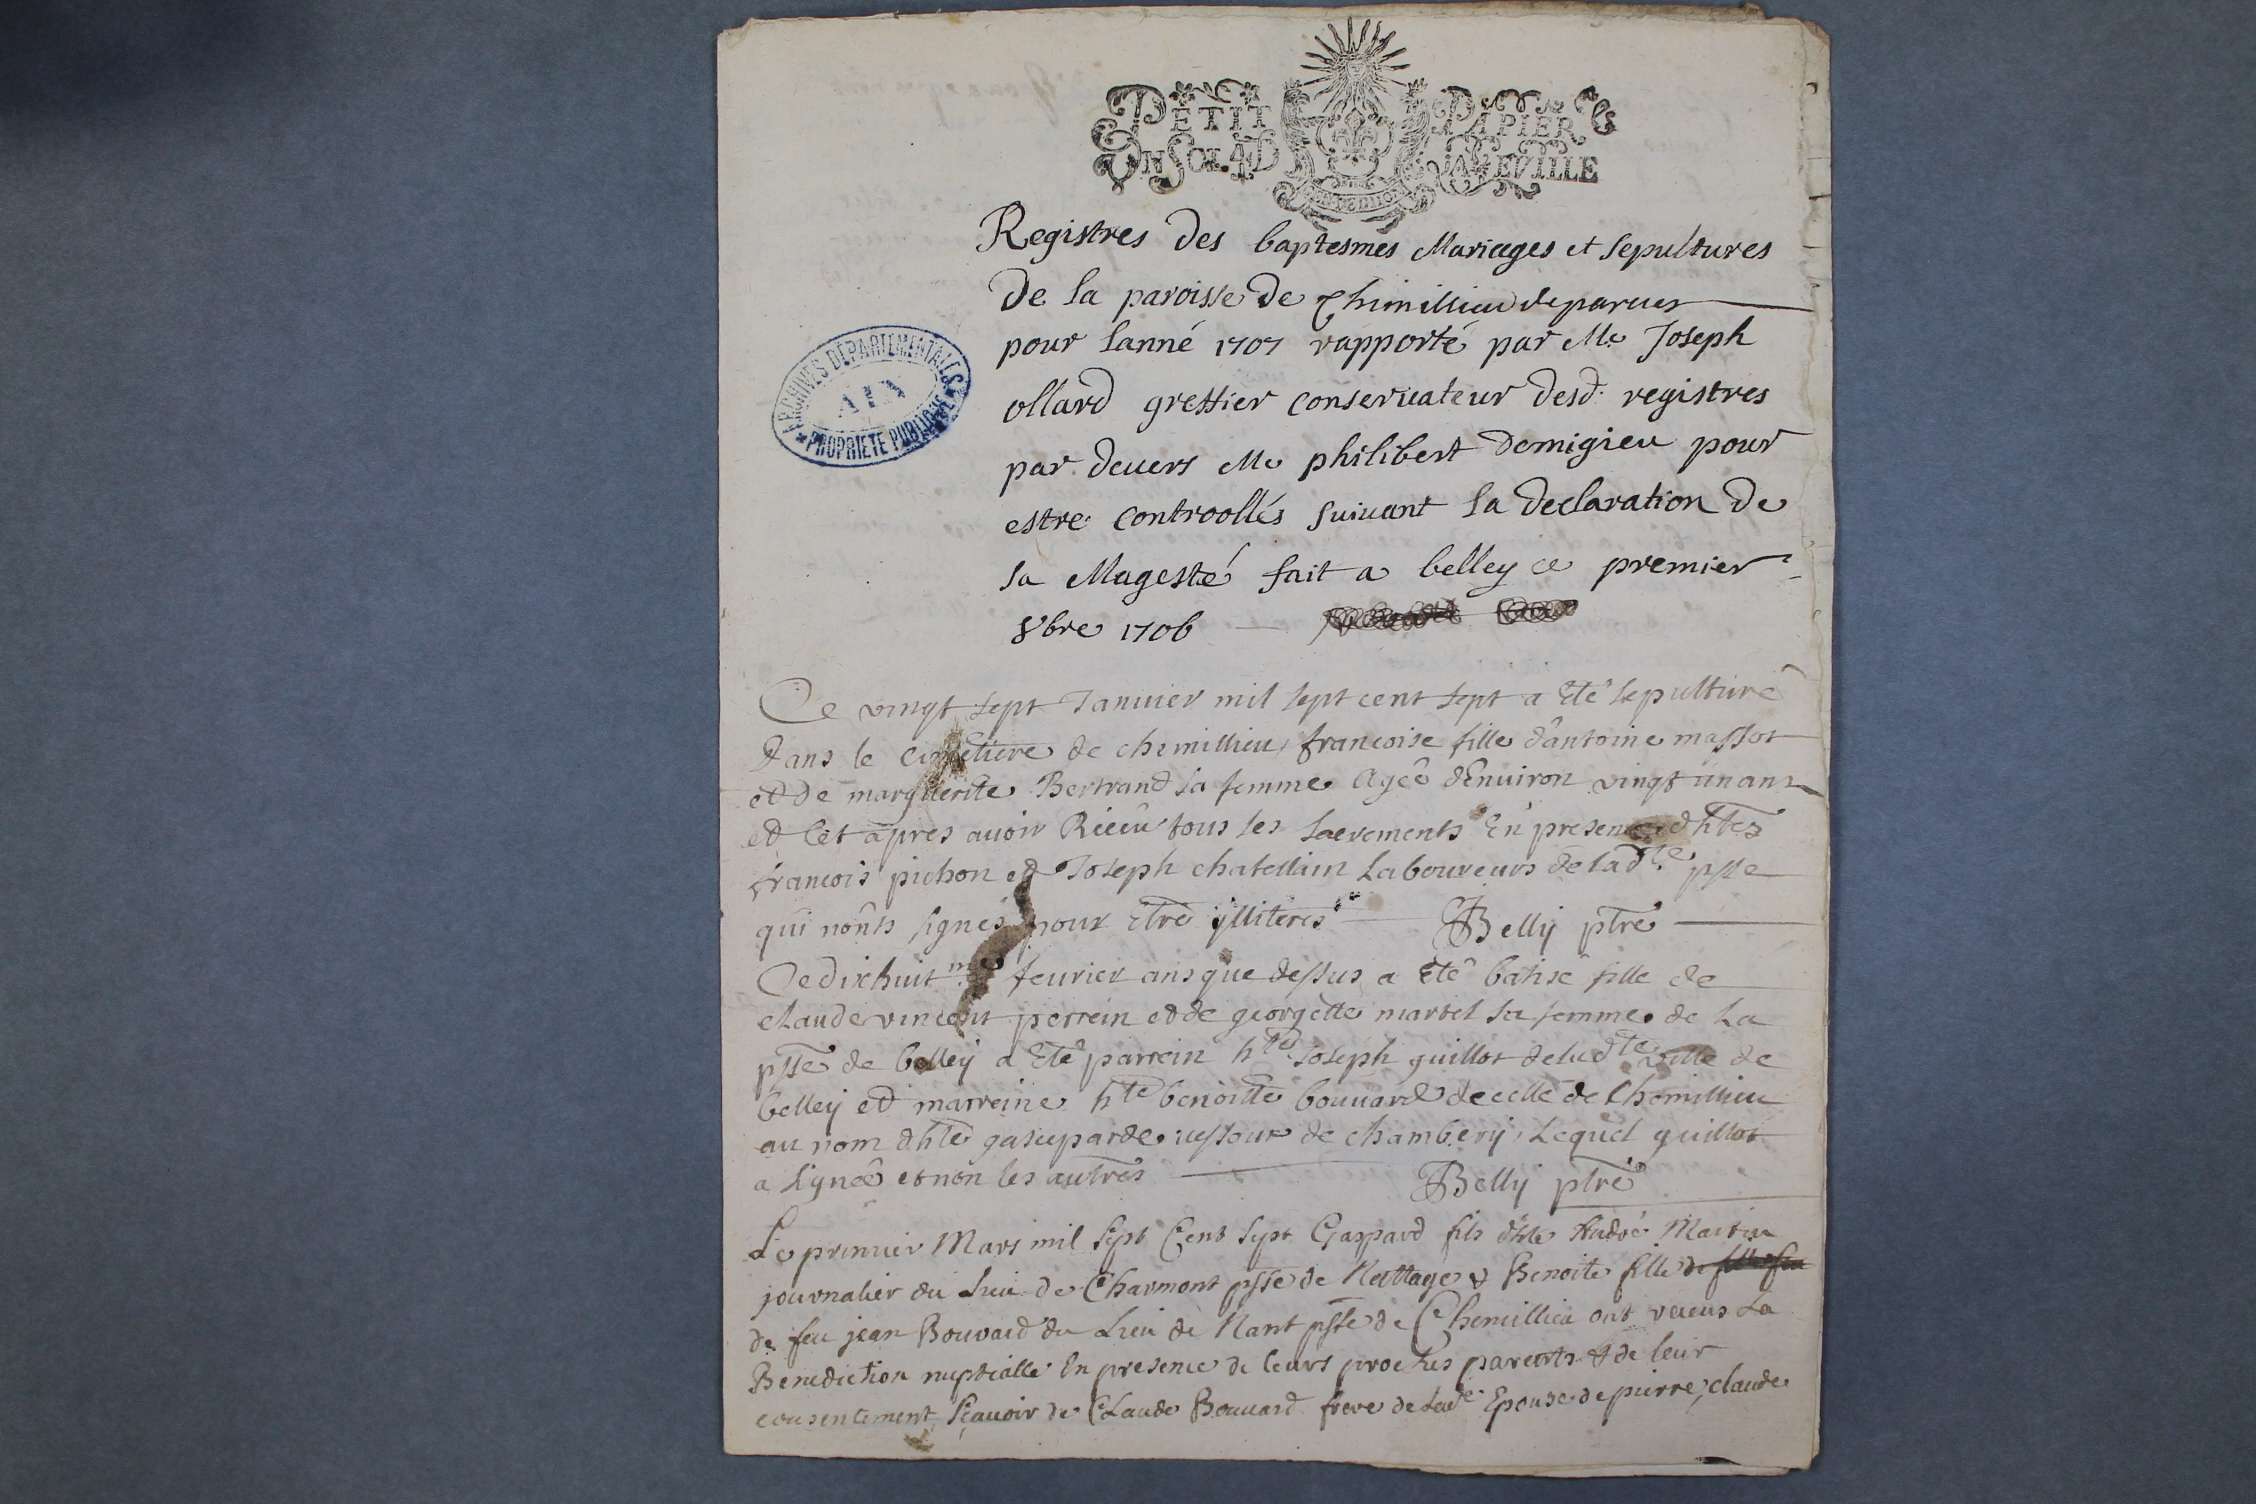 PETIT PAPIER
UN SOL. 4D LA FEUILLE
Registres des baptesmes Mariages et sepultures
De la paroisse de Chimillieu de parues
pour lanné 1707 rapporté par Me Joseph
ollard greffier conseruateur desd. registres
par deuers Me philibert demigieu pour
estre controollés suiuant la declaration de
sa Magesté fait a belley ce premier
8bre 1706
ARCHIVES DÉPARTEMENTALES
AIN
* PROPRIÉTÉ PUBLIQUE *
Ce vingt sept Januier mil sept cent sept a eté sepulturé
dans le cimetiere de chemillieu francoise fille d'antoine massot
et de marguerite Bertrand sa femme agée d'enuiron vingt un ans
et cet apres auoir Riceu tous les sacrements En presence d htes
francois pichon et Joseph chatellim laboureurs de lad.te psse
qui nonts signés pour etre illiteres Belly ptre
Ce dixhuit me feurier ans que dessus a eté batisé fille de
claude vincent perrein et de georgette martel sa femme de La
psse de belleÿ a eté parrein hte Joseph guillot de lad te ville de
belleÿ et marreine hte benoitte bouuard de celle de Chemillieu
au nom dhte gasuparde de chamberÿ, Lequel guillot
a signée et non les autres Belly ptre
Le premier Mars mil sept Cent sept Gaspard fils d'hte André Martin
journalier du Lieu de Charmont psse de Nattage & Benoite fille
de feu jean Bouvard du Lieu de Nant psse de Chemillieu ont receus La
Benediction nuptialle En presence de leurs proches parents & de leur
consentement, sçauoir de Claude Bouuard frere de Lad.e Epouse de pierre, claude